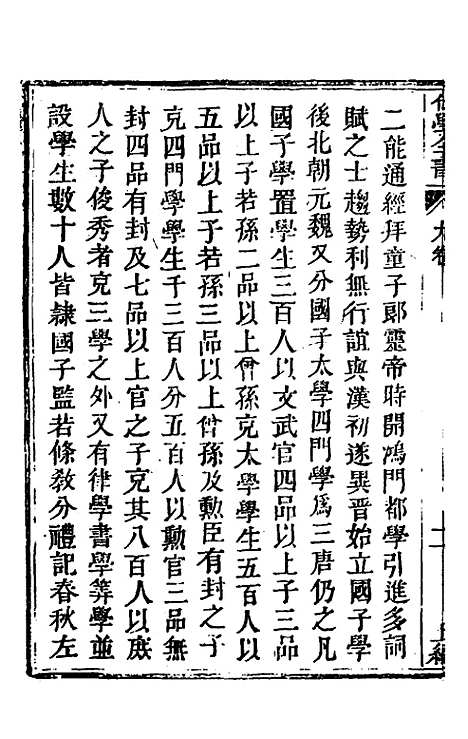 二能通經拜童子郎靈帝時開鴻門都學引進多詞
賦之士趨勢利無行誼與漢初遂異晉始立國子學
後北朝元魏又分國子太學四門學爲三唐仍之凡
國子學置學生三百人以文武官四品以上子三品
以上子若孫二品以上曾孫克太學學生五百人以
五品以上子若孫三品以上曾孫及勳臣有封之子
克四門學學生千三百人分五百人以勳官三品無
封四品有封及七品以上官之子克其八百人以庶
人之子俊秀者克三學之外又有律學書學筭學並
設學生數十人皆隸國子監若條敎分禮記春秋左